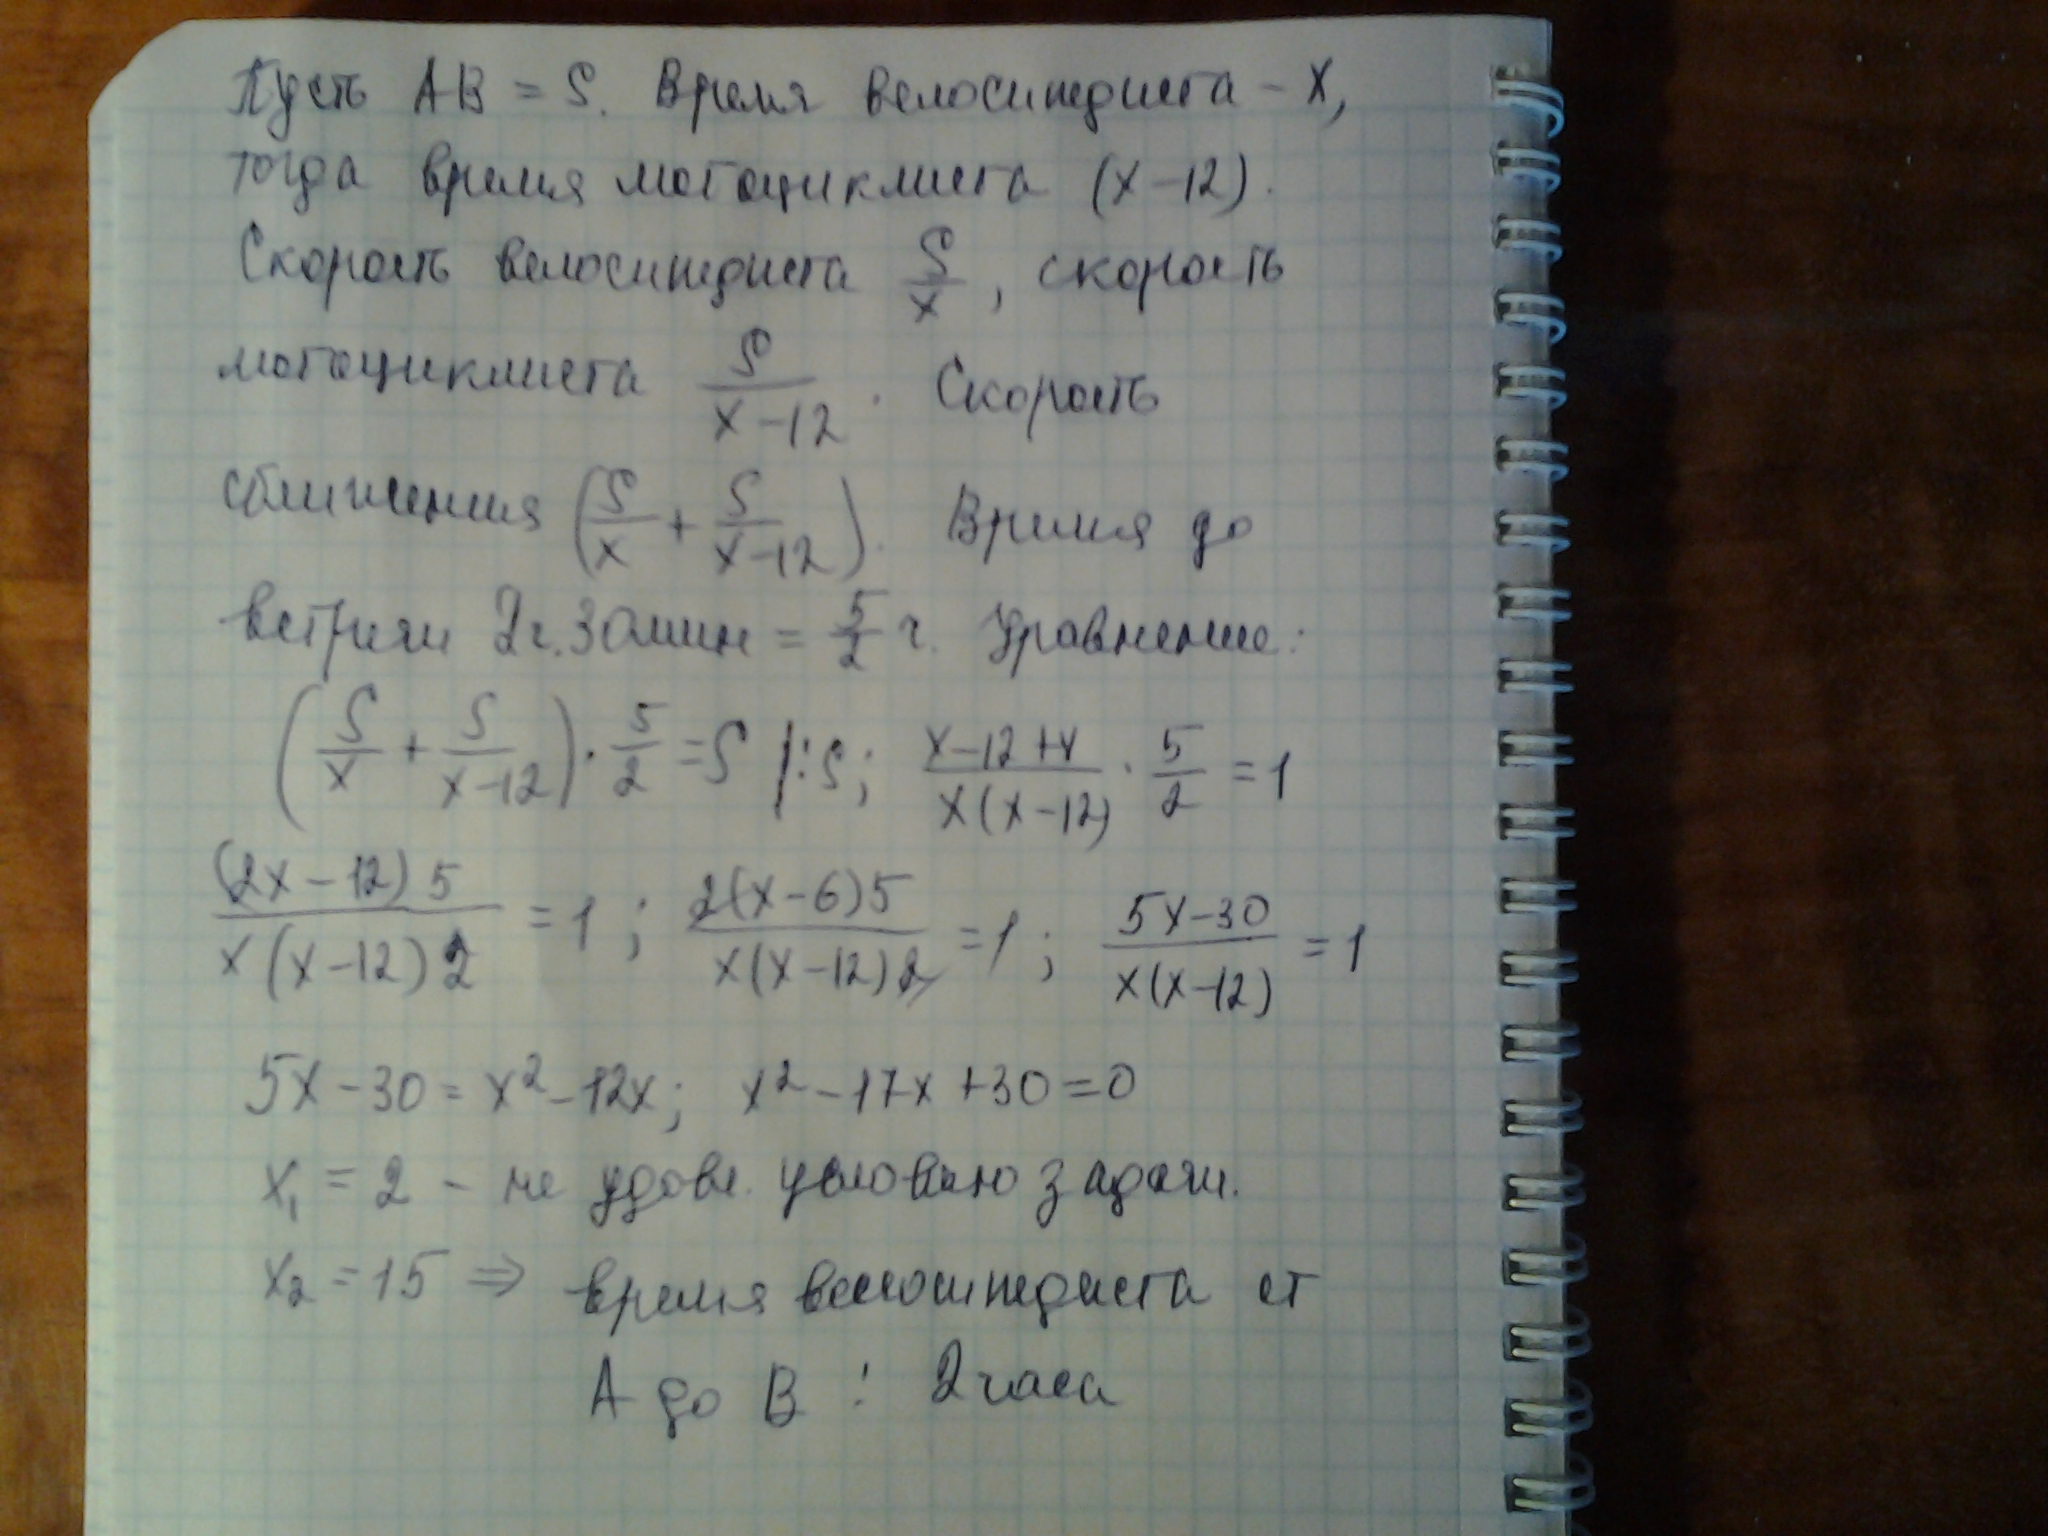 Пусть AB = S. Время велосипедиста - x,
тогда время мотоциклиста (x-12).
Скорость велосипедиста S/x, скорость
мотоциклиста S/(x-12). Скорость
сближения (S/x + S/(x-12)). Время до
встречи 2ч.30мин = 5/2 ч. Уравнение:
(S/x + S/(x-12)) · 5/2 = S |:S; (x-12+x)/(x(x-12)) · 5/2 = 1
(2x-12)5/(x(x-12)2) = 1; 2(x-6)5/(x(x-12)2) = 1; (5x-30)/(x(x-12)) = 1
5x-30 = x²-12x; x²-17x+30=0
x₁ = 2 - не удовл. условию задачи.
x₂ = 15 ⇒ время велосипедиста от
A до B : 2 часа